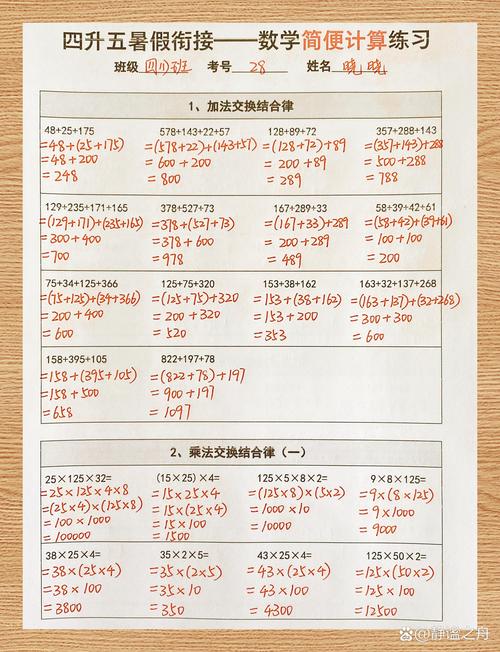 四升五暑假衔接——数学简便计算练习
班级 四(1)班 考号 28 姓名 晓晓
1、加法交换结合律
48+25+175 578+143+22+57 128+89+72 357+288+143
=48+(25+175) =(578+22)+(143+57) =(128+72)+89 =(357+143)+288
=48+200 =600+200 =200+89 =500+288
=248 =800 =289 =788
129+235+171+165 378+527+73 167+289+33 58+39+42+61
=(129+171)+(235+165) =378+(527+73) =(167+33)+289 =(58+42)+(39+61)
=300+400 =378+600 =200+289 =100+100
=700 =978 =489 =200
75+34+125+366 125+75+320 153+38+162 163+32+137+268
=(75+125)+(34+366) =(125+75)+320 =153+(38+162) =(163+137)+(32+268)
=200+400 =200+320 =153+200 =300+300
=600 =520 =353 =600
158+395+105 822+197+78
=158+(395+105) =(822+78)+197
=158+500 =900+197
=658 =1097
2、乘法交换结合律（一）
25×125×32= (15×25)×4= 125×5×8×2= 9×8×125=
=25×125×4×8 =15×25×4 =(125×8)×(5×2) =9×(8×125)
=(25×4)×(125×8) =15×(25×4) =1000×10 =9×1000
=100×1000 =15×100 =10000 =9000
=100000 =1500
38×25×4= 35×2×5= 43×25×4= 125×50×2=
=38×(25×4) =35×(2×5) =43×(25×4) =125×(50×2)
=38×100 =35×10 =43×100 =125×100
=3800 =350 =4300 =12500
@静谧之舟